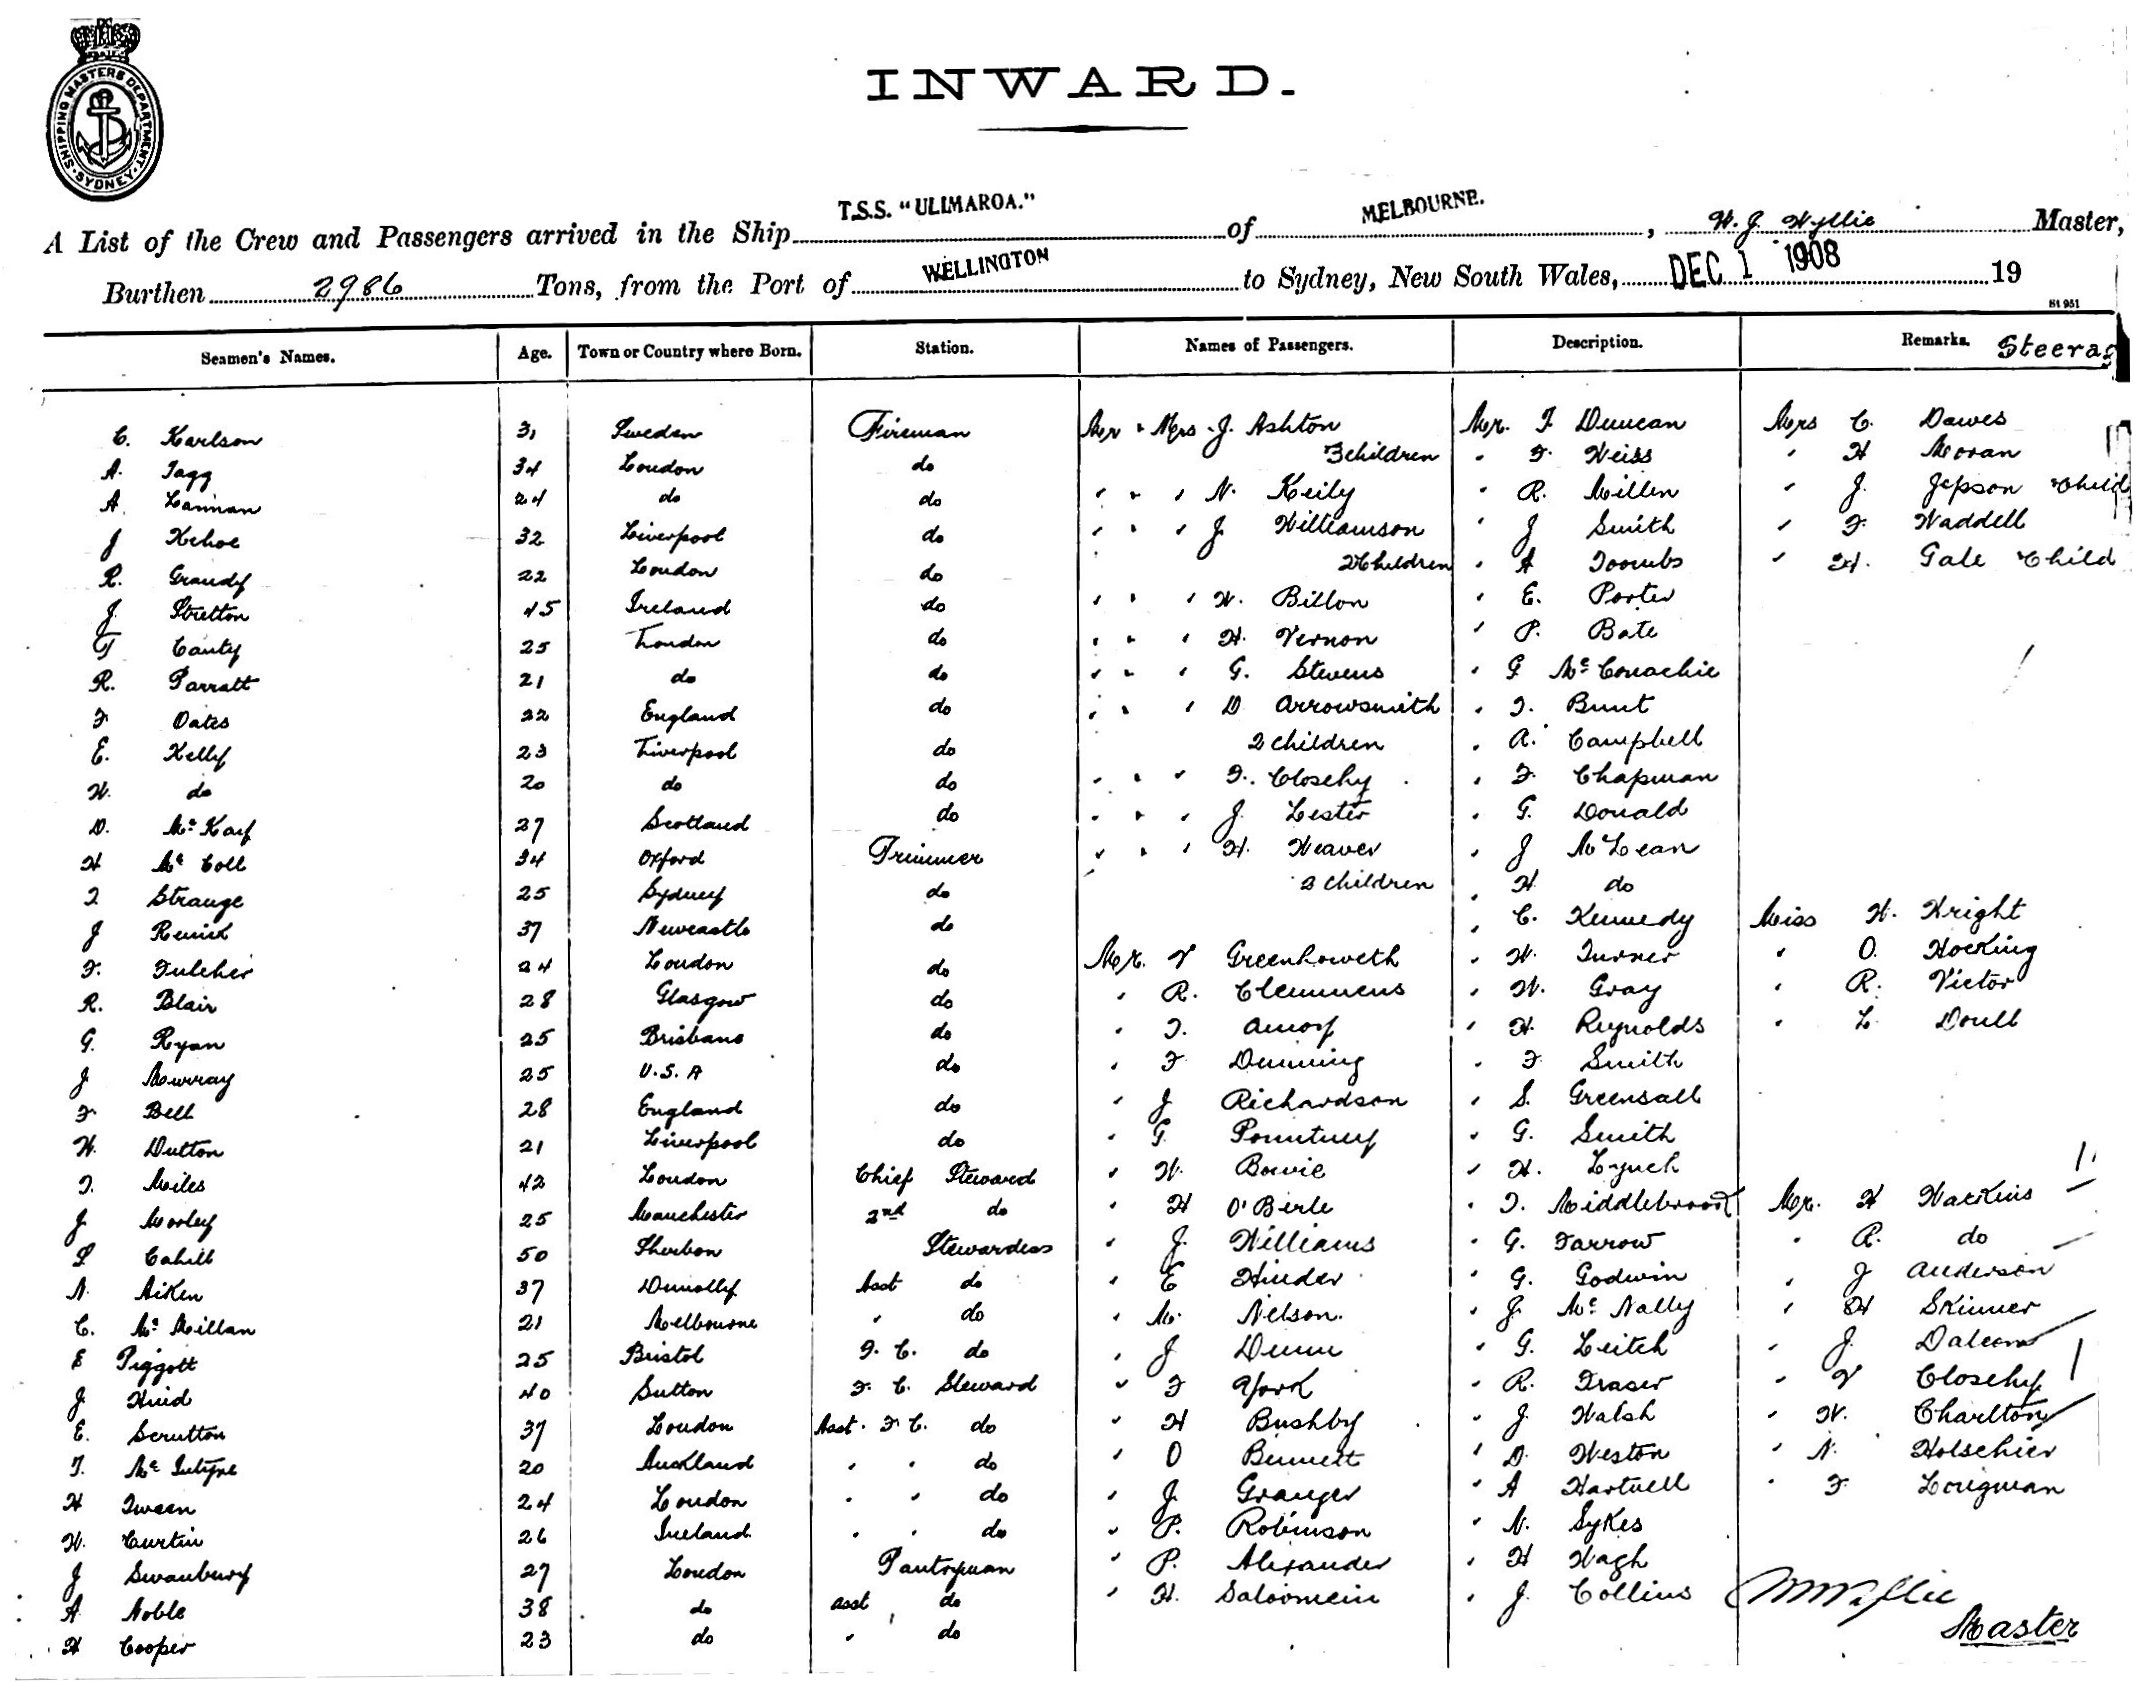 SHIPPING MASTERS DEPARTMENT
SYDNEY
INWARD.
A List of the Crew and Passengers arrived in the Ship T.S.S. "ULIMAROA." of MELBOURNE. , W. J. Wyllie Master,
Burthen 2986 Tons, from the Port of WELLINGTON to Sydney, New South Wales, DEC 1 1908 19
St 951
Seamen's Names. Age. Town or Country where Born. Station. Names of Passengers. Description. Remarks. Steerag
C. Karlson 31 Sweden Fireman Mr " Mrs J. Ashton Mr. T Duncan Mrs C. Dawes
A. Tagg 34 London do 3 children " F. Weiss " H Moran
A. Lannan 24 do do " " " N. Keily " R. Millen " J. Jepson Child
J Kehoe 32 Liverpool do " " " J Williamson " J Smith " F. Waddell
R. Grandy 22 London do 2 Children " A Toombs " H. Gale Child
J. Stretton 45 Ireland do " " " W. Billon " E. Porter
T Canty 25 London do " " " H. Vernon " P. Bate
R. Parratt 21 do do " " " G. Stevens " G McConachie
F Oates 22 England do " " " D Arrowsmith " T. Bunt
E. Kelly 23 Liverpool do 2 children " A. Campbell
W. do 20 do do " " " F. Closehy " F. Chapman
D. McKay 27 Scotland do " " " J Lester " G. Donald
H McColl 34 Oxford Trimmer " " " H. Weaver " J McLean
T Strange 25 Sydney do 2 children " H do
J Renick 37 Newcastle do " C. Kennedy Miss W. Wright
F. Fulcher 24 London do Mr. V Greenhoweth " W. Turner " O. Hocking
R. Blair 28 Glasgow do " R. Clemmens " W. Gray " R. Victor
G. Ryan 25 Brisbane do " T. Amory " H. Reynolds " L Doull
J Murray 25 U.S.A do " F Dunning " F Smith
F. Bell 28 England do " J Richardson " S. Greensall
W. Dutton 21 Liverpool do " G. Pountney " G. Smith
T. Miles 42 London Chief Steward " W. Bowie " H. Lynch
J. Morley 25 Manchester 2nd do " H O'Berle " T. Middlebrook Mr. H Watkins
S Cahill 50 Stewardess " J. Williams " G. Farrow " R. do
N. Aiken 37 Dunolly Asst do " E Hinder " G. Godwin " J Anderson
C. McMillan 21 Melbourne " do " M. Nelson. " J. McNally " H Skinner
E Piggott 25 Bristol F. C. do " J Dunn " G. Leitch " J.
J. Hind 40 Sutton F. C. Steward " F York " R. Fraser " V Closehy
E. Scrutton 37 London Asst. F C. do " H Bushby " J Walsh " W. Charlton
T. McIntyre 20 Auckland " " do " O Bennett " D. Weston " N. Holschier
H Tween 24 London " " do " J. Granger " A Hartnell " F Longman
W. Curtin 26 Ireland " " do " P. Robinson " N. Sykes
J Swanbury 27 London Pantryman " P. Alexander " H Wagh
A Noble 38 do asst do " H. " J. Collins W J Wyllie
H Cooper 23 do " do Master